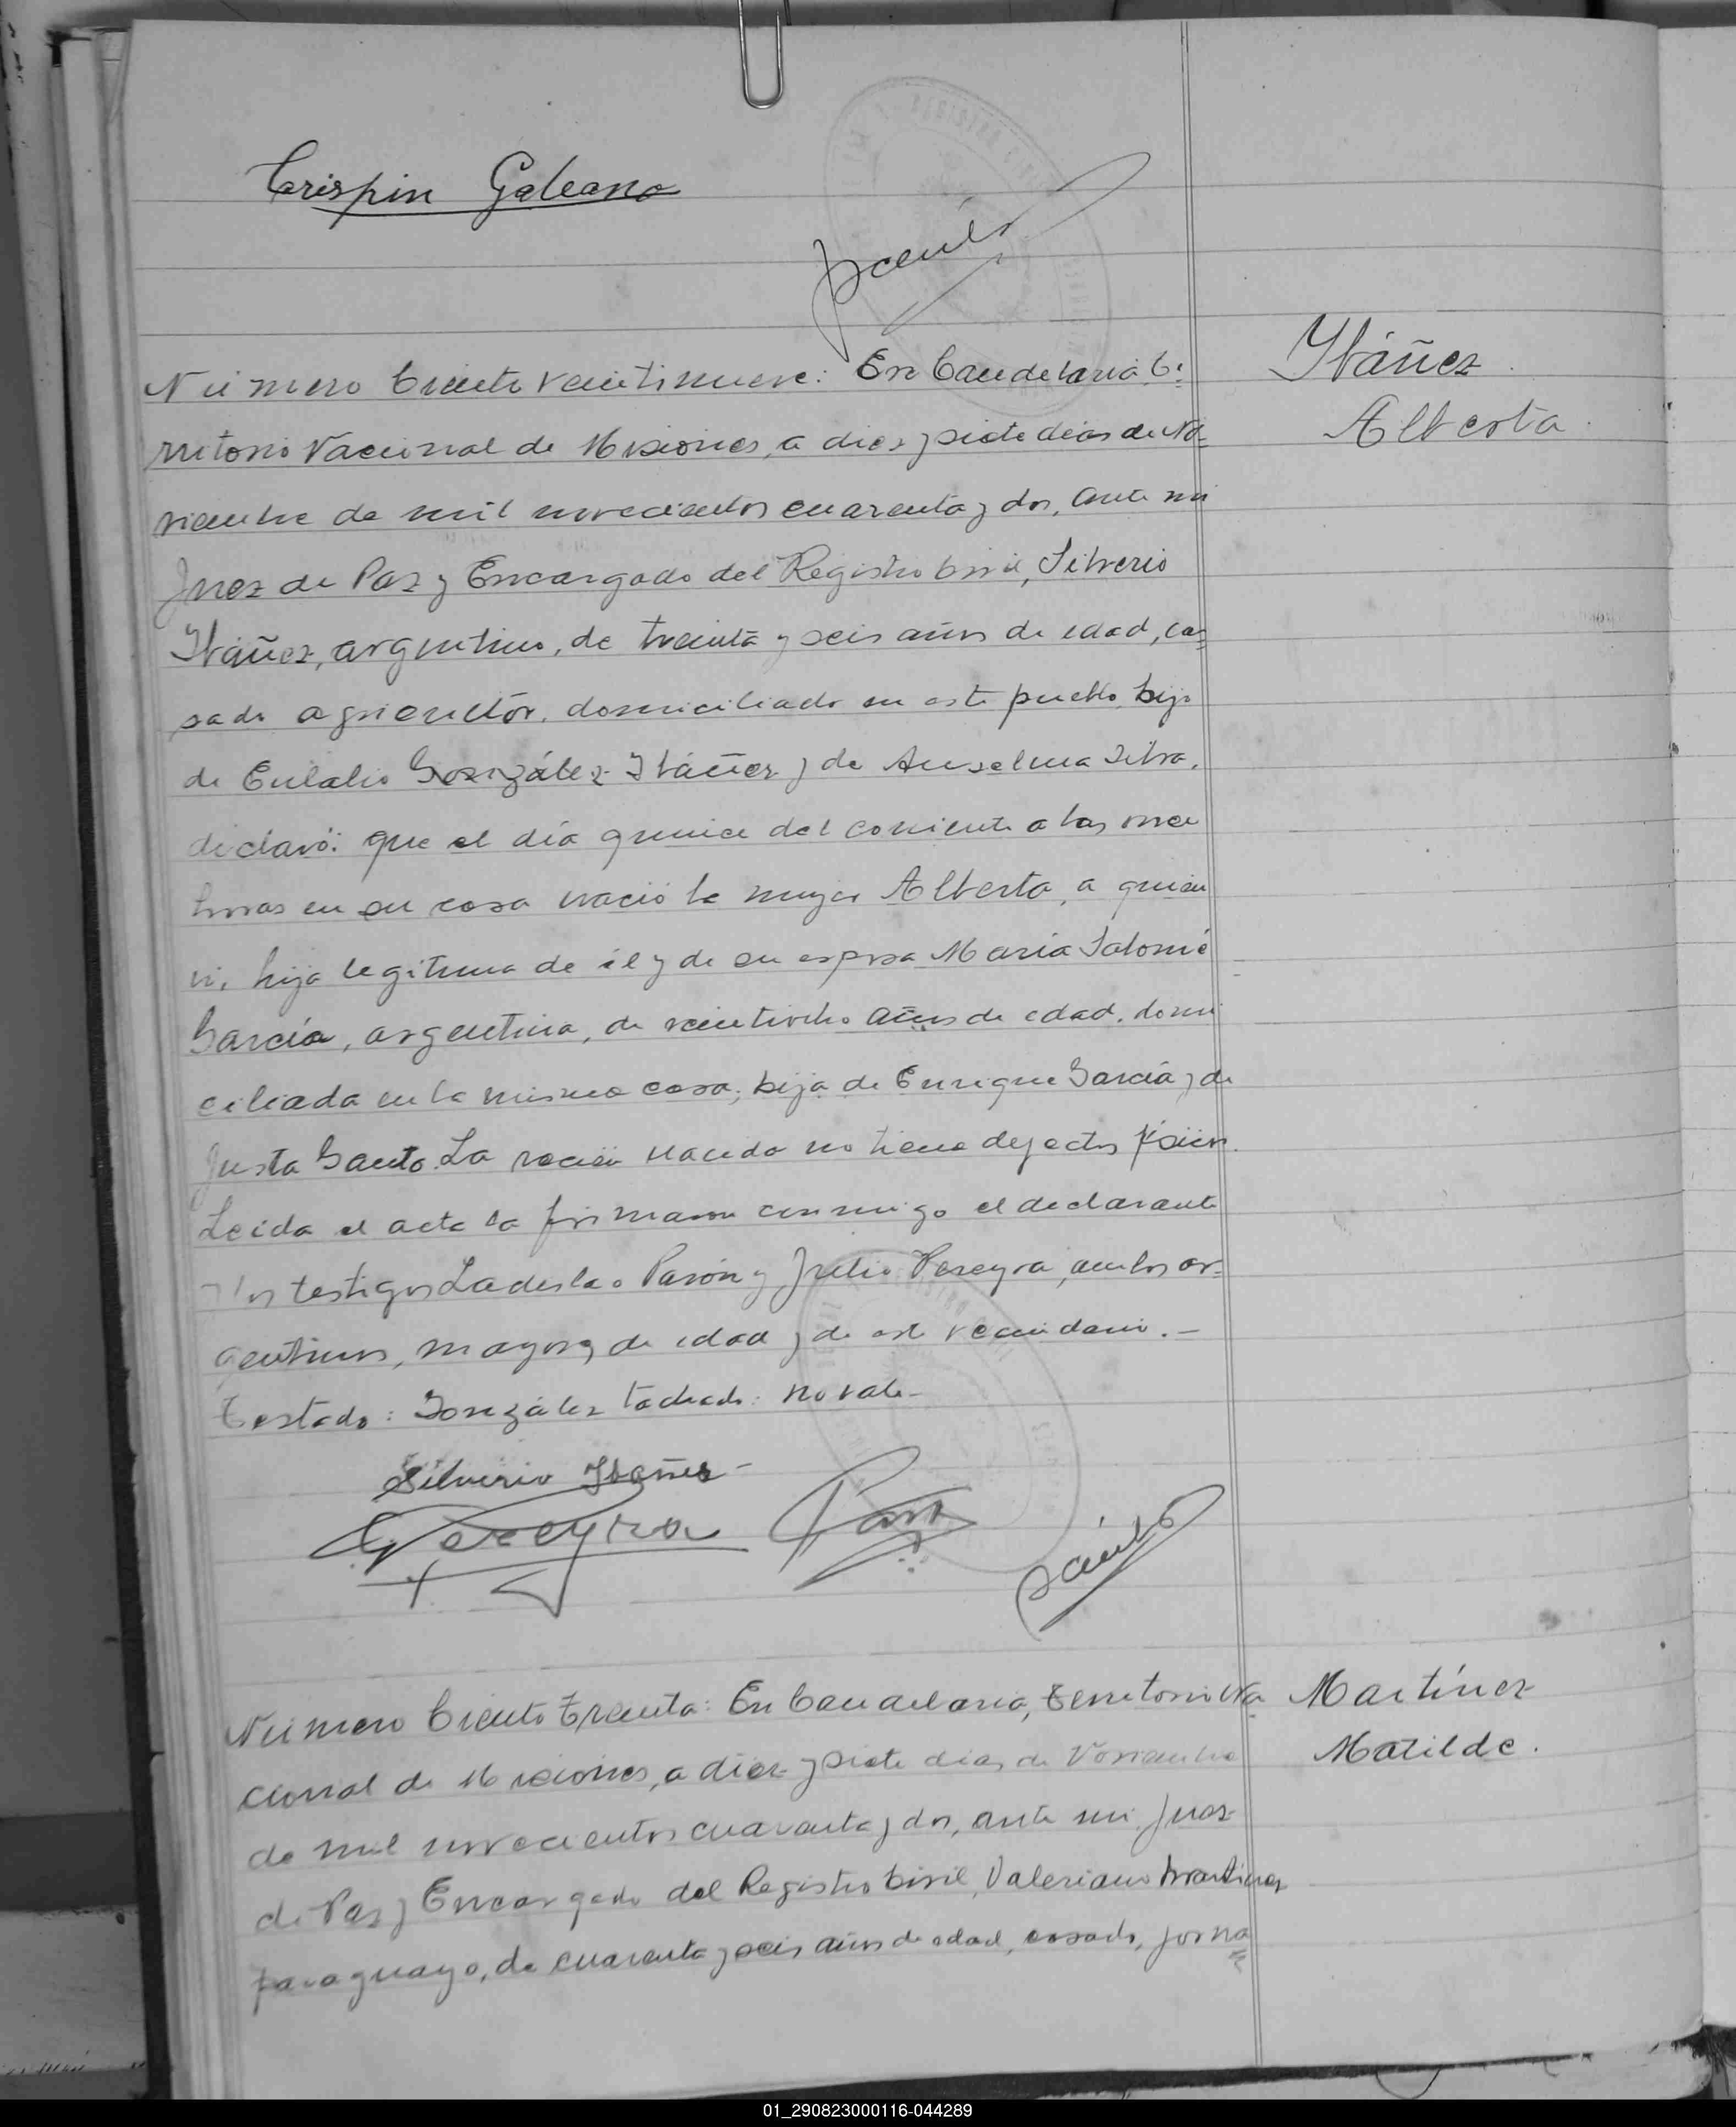 Crispin Galeano
Número Ciento veintinueve: En Candelaria Te
rritorio Nacional de Misiones, a diez y siete dias de No
viembre de mil novecientos cuarenta y dos, ante mi
Juez de Paz y Encargado del Registro Civil, Silverio
Ibáñez, argentino, de treinta y seis años de edad, ca
sado agricultor, domiciliado en este pueblo, hijo
de Eulalio González Ibáñez y de Anselma Silva,
declaró: que el día quince del corriente a las once
horas en su casa nació la mujer Alberta, a quien
vi, hija legitima de él y de su esposa María Salomé
García, argentina, de veintiocho años de edad, domi
ciliada en la misma casa, hija de Enrique García y de
Justa. La recien nacida no tiene defectos físicos.
Leida el acta la firmaron conmigo el declarante
y los testigos Ladislao Pavón y Julio Pereyra, ambos ar-
gentinos, mayores de edad y de este vecindario.-
Testado: González tachado: no vale-
Silverio Ibañez-
Pereyra
Ibáñez
Alberta.
Número Ciento Treinta: En Candelaria, Territorio Na
cional de Misiones, a diez y siete dias de Noviembre
de mil novecientos cuarenta y dos, ante mi Juez
de Paz y Encargado del Registro Civil, Valeriano Martinez
paraguayo, de cuarenta y seis años de edad, casado, jorna
Martínez
Matilde.
01_290823000116-044289